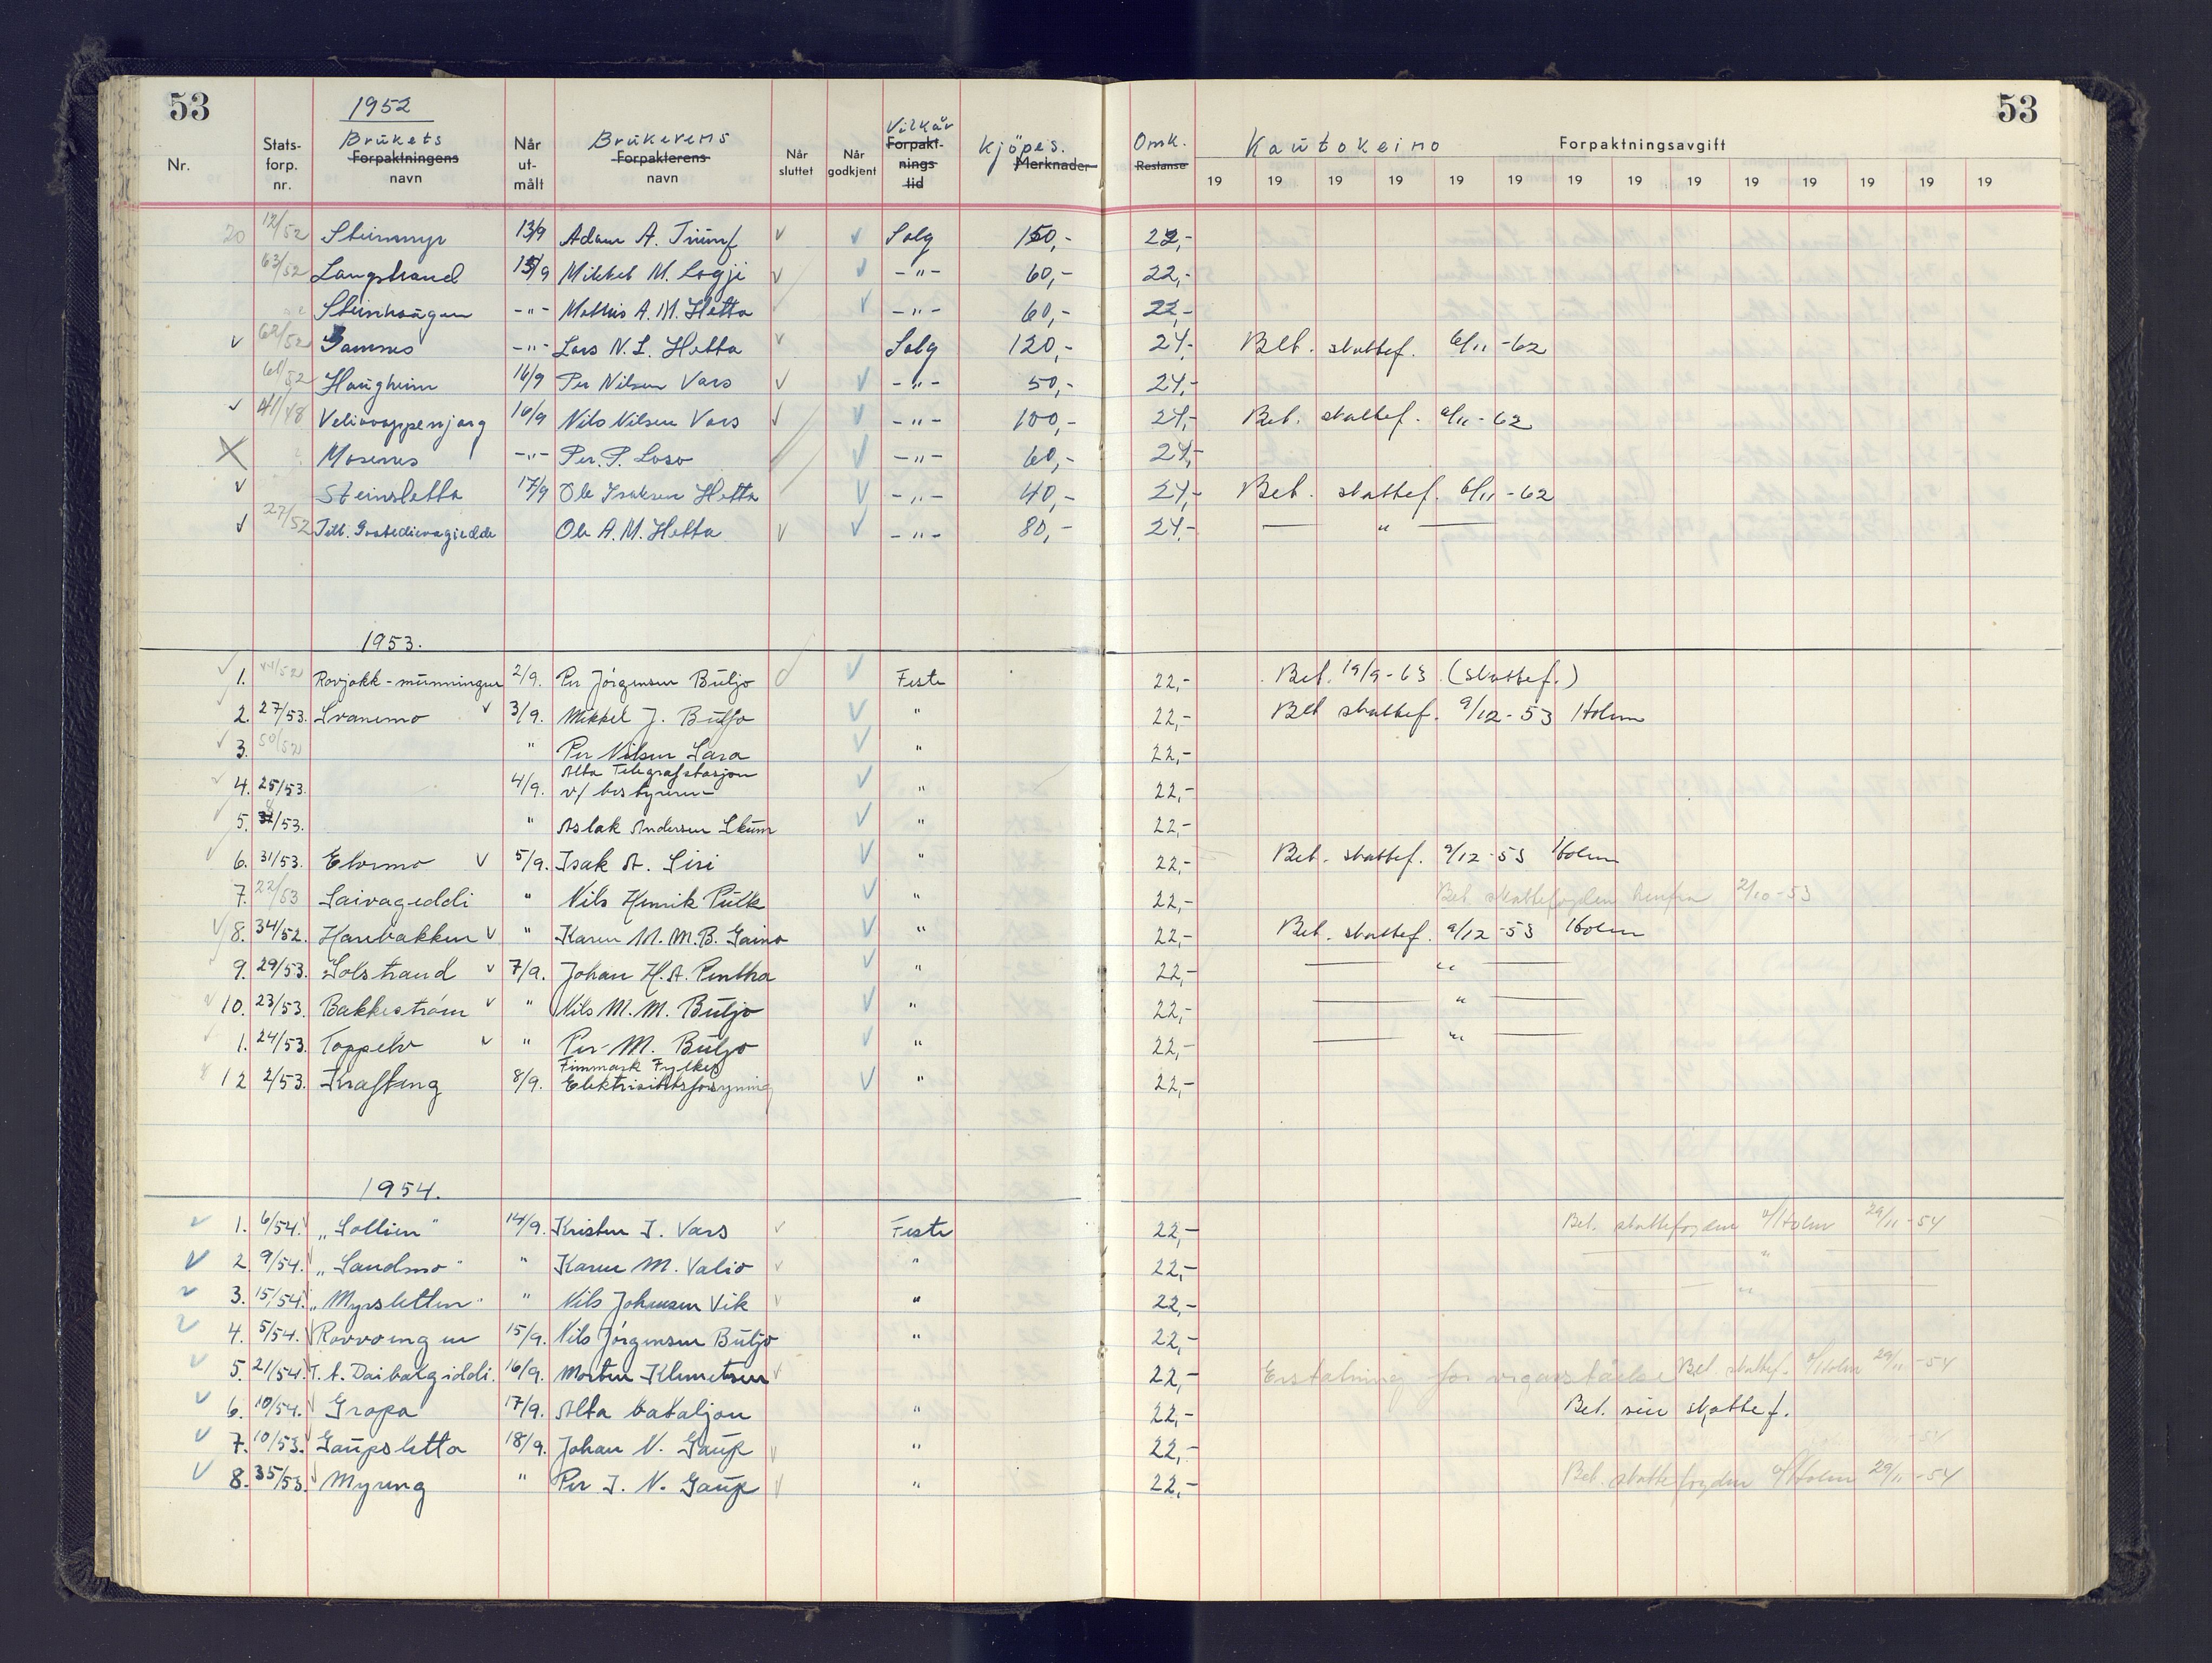 53 1952 53
Nr. Stats-forp. nr. Brukets Forpaktningens navn Når ut-målt Brukerens Forpakterens navn Når sluttet Når godkjent Vilkår Forpakt-nings tid Kjöpes. Merknader Omk. Restanse Kautokeino Forpaktningsavgift
19 19 19 19 19 19 19 19 19 19 19 19 19 19
20 12/52 Steinmyr 13/9 Adam A. Triumf Salg 150,- 22,-
63/52 Langstrand 15/9 Mikkel M. Logji -"- 60,- 22,-
Steinhaugen -"- Mathis A. M. Hetta -"- 60,- 22,-
62/52 Lars N. L. Hetta Salg 120,- 24,- Bet. skattef. 6/11-62
61/52 Haugheim 16/9 Per Nilsen Vars -"- 50,- 24,-
41/48 Veliovappenjarg 16/9 Nils Nilsen Vars -"- 100,- 24,- Bet. skattef. 6/11-62
Mosenes -"- Per. P. Loso -"- 60,- 24,-
Steinsletta 17/9 Ole Isaksen Hetta -"- 40,- 24,- Bet. skattef. 6/11-62
27/52 Till. Ole A. M. Hetta -"- 80,- 24,- — " —
1953.
1. Rovjokk-munningen 2/9. Per Jörgensen Buljo Feste 22,- Bet. 19/9-63 (skattef.)
2. 27/53. Svanemo 3/9. Mikkel J. Buljo " 22,- Bet skattef. 9/12-53 Holm
3. 50/52 " Per Nilsen Sara " 22,-
4. 25/53. 4/9. Alta Telegrafstasjon v/ bestyreren " 22,-
5. /53. " Aslak Andersen Skum " 22,-
6. 31/53. Elvemo 5/9. Isak A. Siri " 22,- Bet. skattef. 9/12-53 Holm
7. 22/53 Saivageddi " Nils Henrik Pulk " 22,- Bet skattefogden herfra 2/10-53
8. 34/52. Harebakken " Karen M. M. B. Gaino " 22,- Bet. skattef. 9/12-53 Holm
9. 29/53. Solstrand 7/9. Johan H. A. Pentha " 22,- — " —
10. 23/53. Bakkestrøm " Nils M. M. Buljo " 22,- — " —
1. 24/53. Toppelv " Per M. Buljo " 22,- — " —
12 2/53. Krafteng 8/9. Finnmark Fylkes Elektrisitetsforsyning " 22,-
1954.
1. 6/54. "Sollien" 14/9. Kristen J. Vars Feste 22,- Bet. skattefogden v/Holm 29/11-54
2. 9/54. "Sandmo" " Karen M. Valio " 22,- — " —
3. 15/54. "Myrsletten" " Nils Johansen Vik " 22,- — " —
4. 5/54. Rovvoengen 15/9. Nils Jörgensen Buljo " 22,-
5. 21/54. T. A. Daibatgiddi. 16/9. Morten Klemetsen 22,- Erstatning for Bet. skattef. v/Holm 29/11-54
6. 10/54. Gropa 17/9. Alta bataljon " 22,- Bet. siv skattef.
7. 10/53. Gaupsletta 18/9. Johan N. Gaup " 22,-
8. 35/53. Myreng " Per J. N. Gaup " 22,- Bet. skattefogden v/Holm 29/11-54